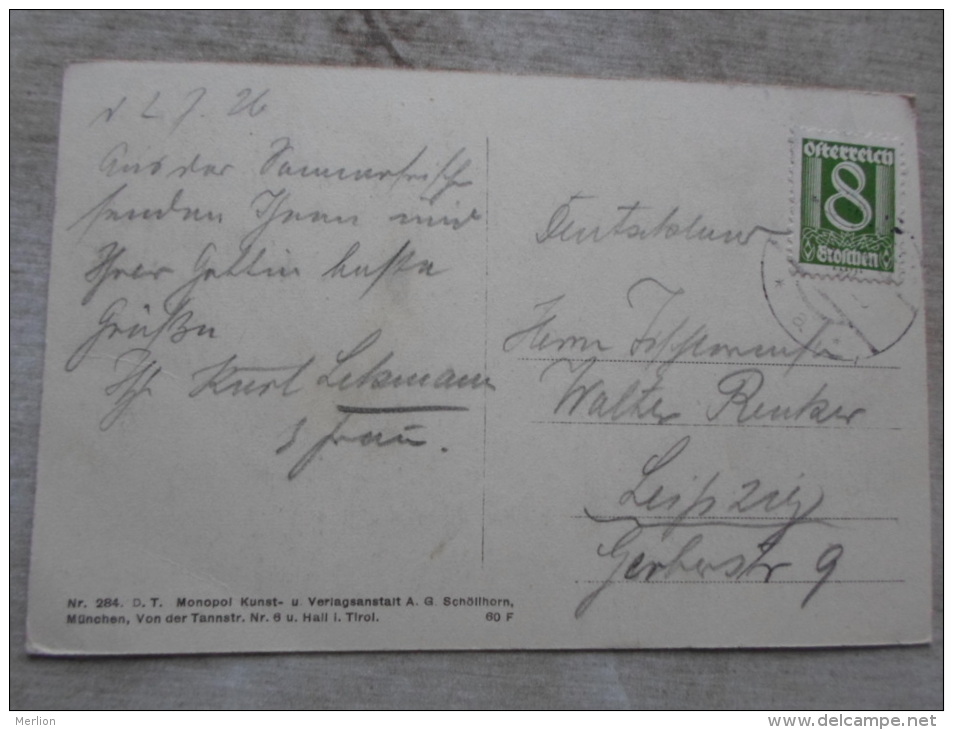 d 2 7. 26
Aus der Sommerfrische
senden Ihnen und
Ihrer Gattin beste
Grüße
Ihr Kurt
Frau.
Österreich
8
Groschen
Deutschland
Herrn
Walter Renker
Leipzig
Gerberstr 9
Nr. 284. D. T. Monopol Kunst- u. Verlagsanstalt A. G. Schöllhorn,
München, Von der Tannstr. Nr. 6 u. Hall i. Tirol. 60 F
Merlion
www.delcampe.net